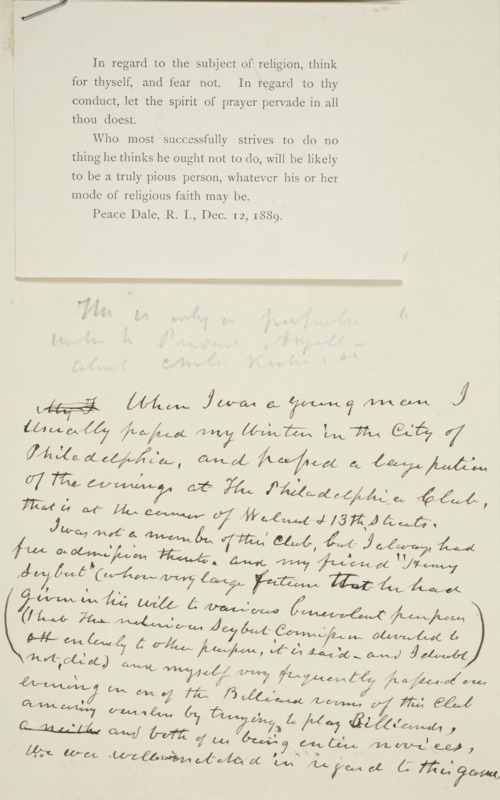 In regard to the subject of religion, think
for thyself, and fear not. In regard to thy
conduct, let the spirit of prayer pervade in all
thou doest.
Who most successfully strives to do no
thing he thinks he ought not to do, will be likely
to be a truly pious person, whatever his or her
mode of religious faith may be.
Peace Dale, R. I., Dec. 12, 1889.
This is only a to
about
When I was a young man I
Usually passed my Winters in the City of
Philadelphia, and passed a large portion
of the evenings at The Philadelphia Club,
that is at the corner of Walnut & 13th Streets.
I was not a member of this Club, but I always had
free admission thereto. and my friend "Henry
Seybert" (whose very large fortune that he had
given in his will to various benevolent purposes
(that the Seybert Commission devoted to
entirely to other purposes, it is said - and I doubt
not, did) and myself very frequently passed our
evening in one of the Billiard rooms of this Club
amusing ourselves by trying to play Billiards,
and both of us being entire novices,
We were well matched in regard to this game